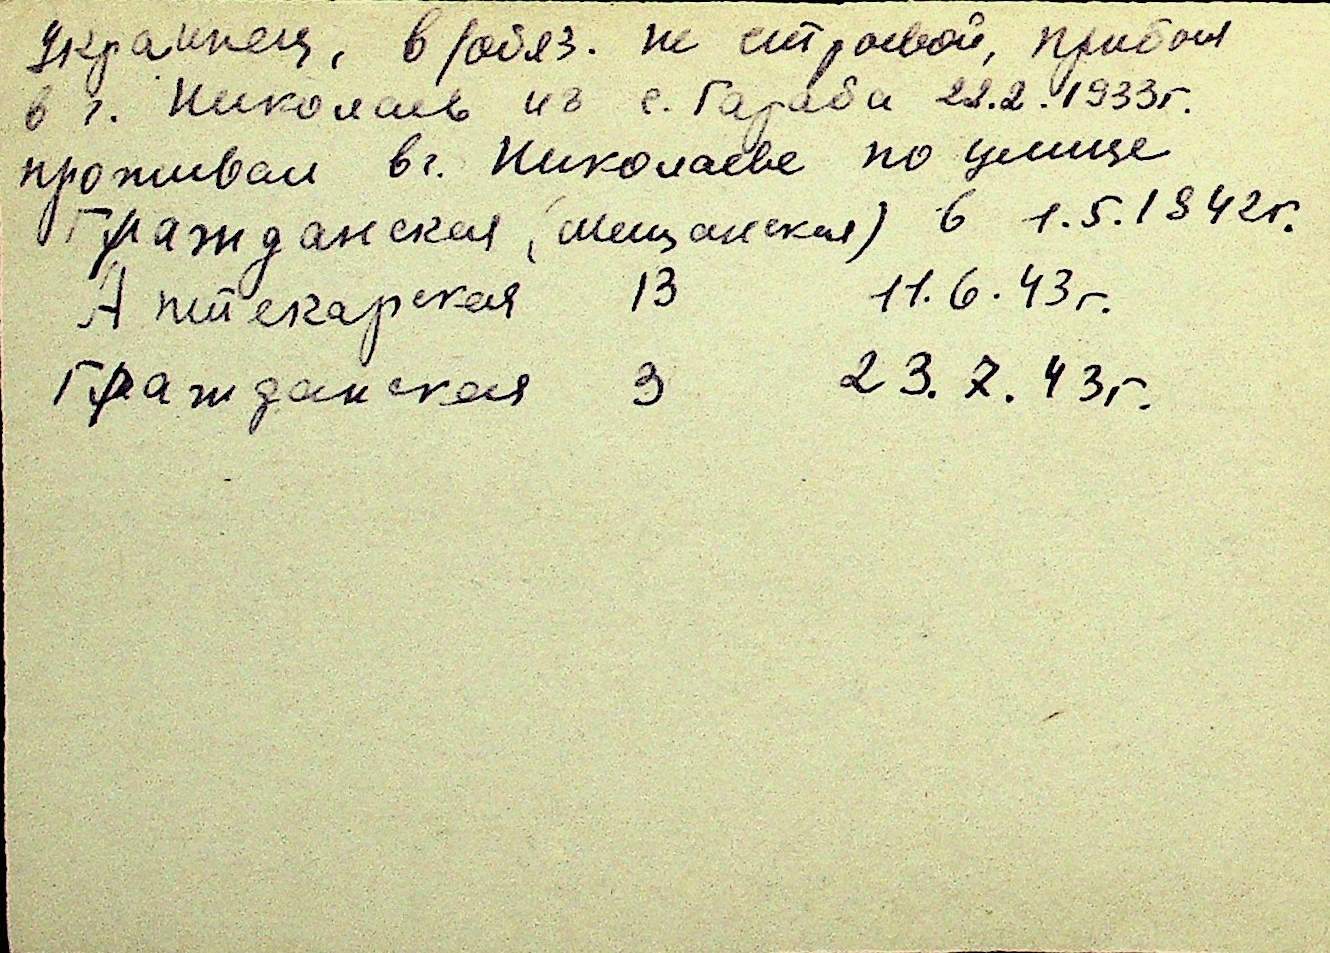 Украинец, в/обяз. не строевой, прибыл
в г. Николаев из с. Гараба 22.2.1933г.
проживал в г. Николаеве по улице
Гражданская (Мещанская) 6 1.5.1942г.
Аптекарская 13 11.6.43г.
Гражданская 3 23.7.43г.